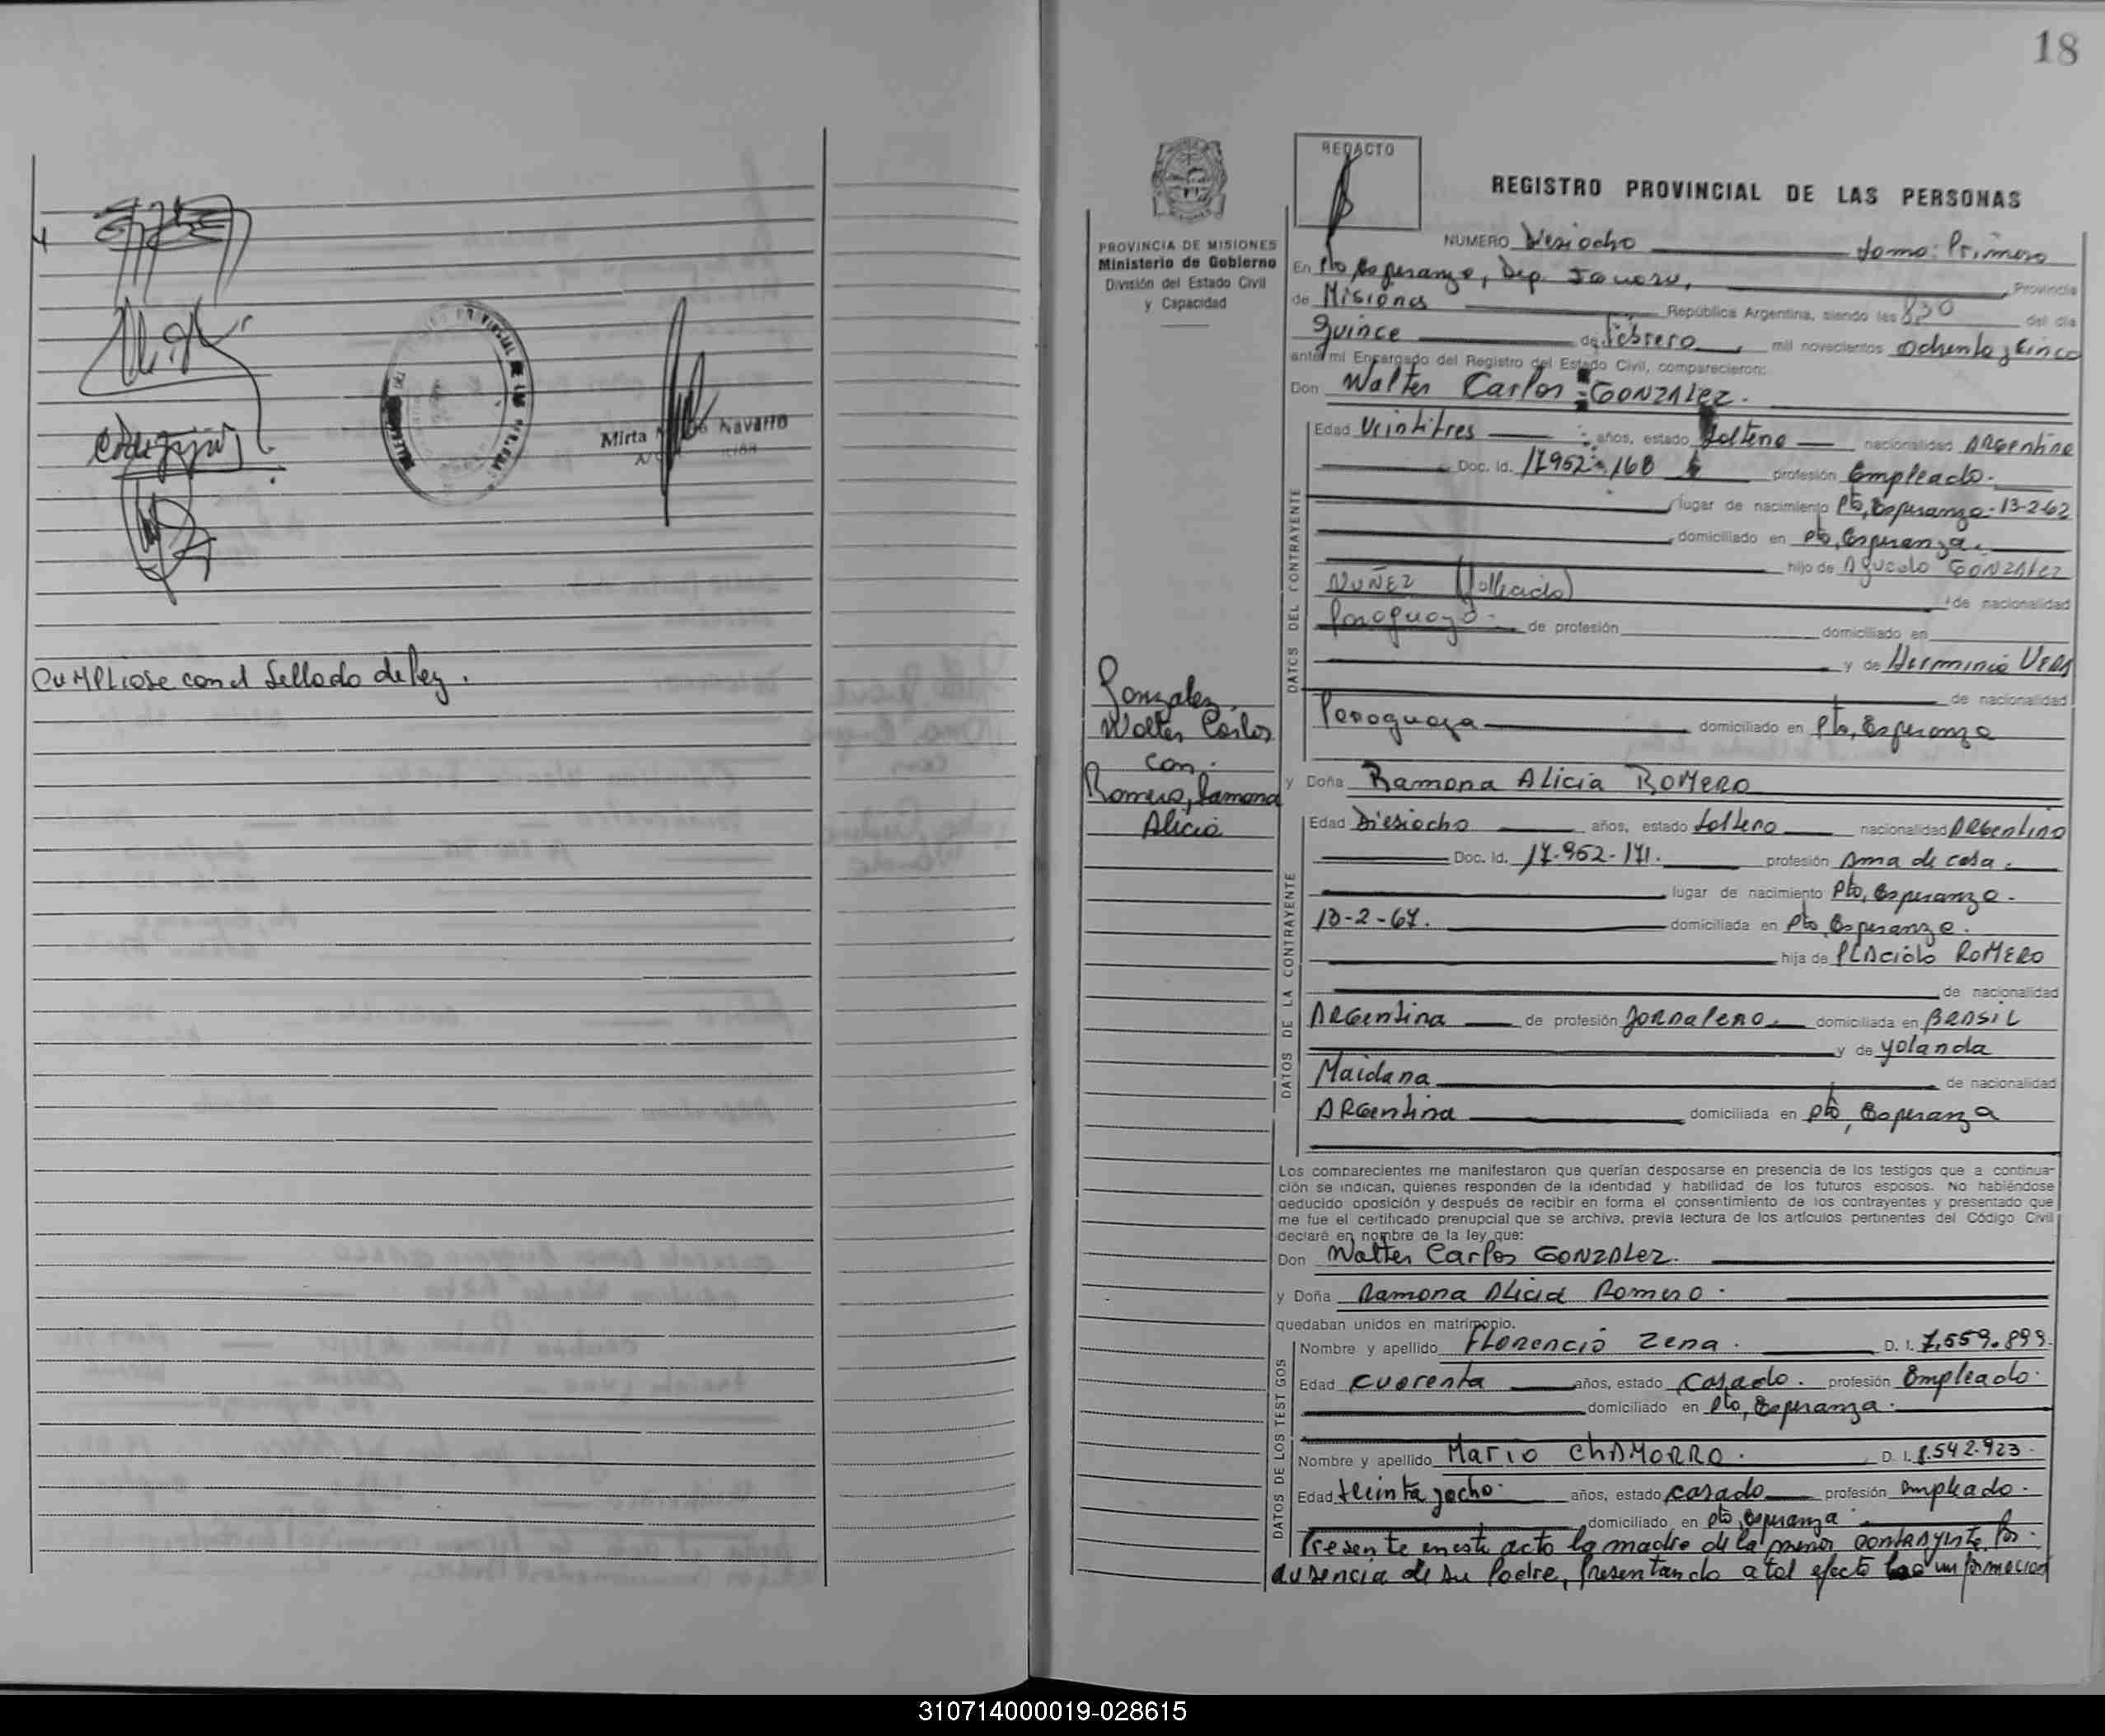 CUMPLIOSE con el Sellado de ley.
Mirta Navarro
18
REDACTO
REGISTRO PROVINCIAL DE LAS PERSONAS
PROVINCIA DE MISIONES
Ministerio de Gobierno
División del Estado Civil
y Capacidad
NUMERO Diesiocho tomo: Primero
En Pto Esperanza, Dep. , Provincia
de Misiones República Argentina, siendo las 8,30 del día
quince de febrero, mil novecientos ochenta y cinco
ante mí Encargado del Registro del Estado Civil, comparecieron:
Don Walter Carlos GONZALEZ.
DATOS DEL CONTRAYENTE
Edad Veintitres años, estado soltero nacionalidad ARgentina
Doc. Id. profesión Empleado.
lugar de nacimiento Pto, Esperanza - 13-2-62
domiciliado en Pto, Esperanza.
hijo de GONZALEZ
NUÑEZ (fallecido) de nacionalidad
Paraguaya de profesión domiciliado en
y de Herminia VERA
de nacionalidad
Paraguaya domiciliado en Pto, Esperanza
Gonzalez,
Walter Carlos
con.
Romero, Ramona
Alicia
y Doña Ramona Alicia ROMERO
DATOS DE LA CONTRAYENTE
Edad Diesiocho años, estado soltera nacionalidad ARgentina
Doc. Id. 17.952.171. profesión Ama de casa.
lugar de nacimiento Pto, Esperanza.
13-2-67. domiciliada en Pto Esperanza.
hija de PLAcido ROMERO
de nacionalidad
ARGentina de profesión JORnaleRO. domiciliada en BRASIL
y de yolanda
Maidana de nacionalidad
ARGentina domiciliada en Pto, Esperanza
Los comparecientes me manifestaron que querían desposarse en presencia de los testigos que a continua-
ción se indican, quienes responden de la identidad y habilidad de los futuros esposos. No habiéndose
deducido oposición y después de recibir en forma el consentimiento de los contrayentes y presentado que
me fue el certificado prenupcial que se archiva, previa lectura de los artículos pertinentes del Código Civil
declaré en nombre de la ley que:
Don Walter Carlos GONZALEZ.
y Doña Ramona Alicia Romero.
quedaban unidos en matrimonio.
DATOS DE LOS TESTIGOS
Nombre y apellido Florencio Zena. D. I. 7,559.899.
Edad cuarenta años, estado Casado. profesión Empleado.
domiciliado en Pto, Esperanza.
Nombre y apellido Mario ChAMORRO. D. I. 8.542.923.
Edad treinta y ocho. años, estado casado profesión empleado.
domiciliado en Pto, Esperanza
Presente en este acto la madre de la menor contrayente, Por
ausencia de su Padre, Presentando a tal efecto informacion
310714000019-028615